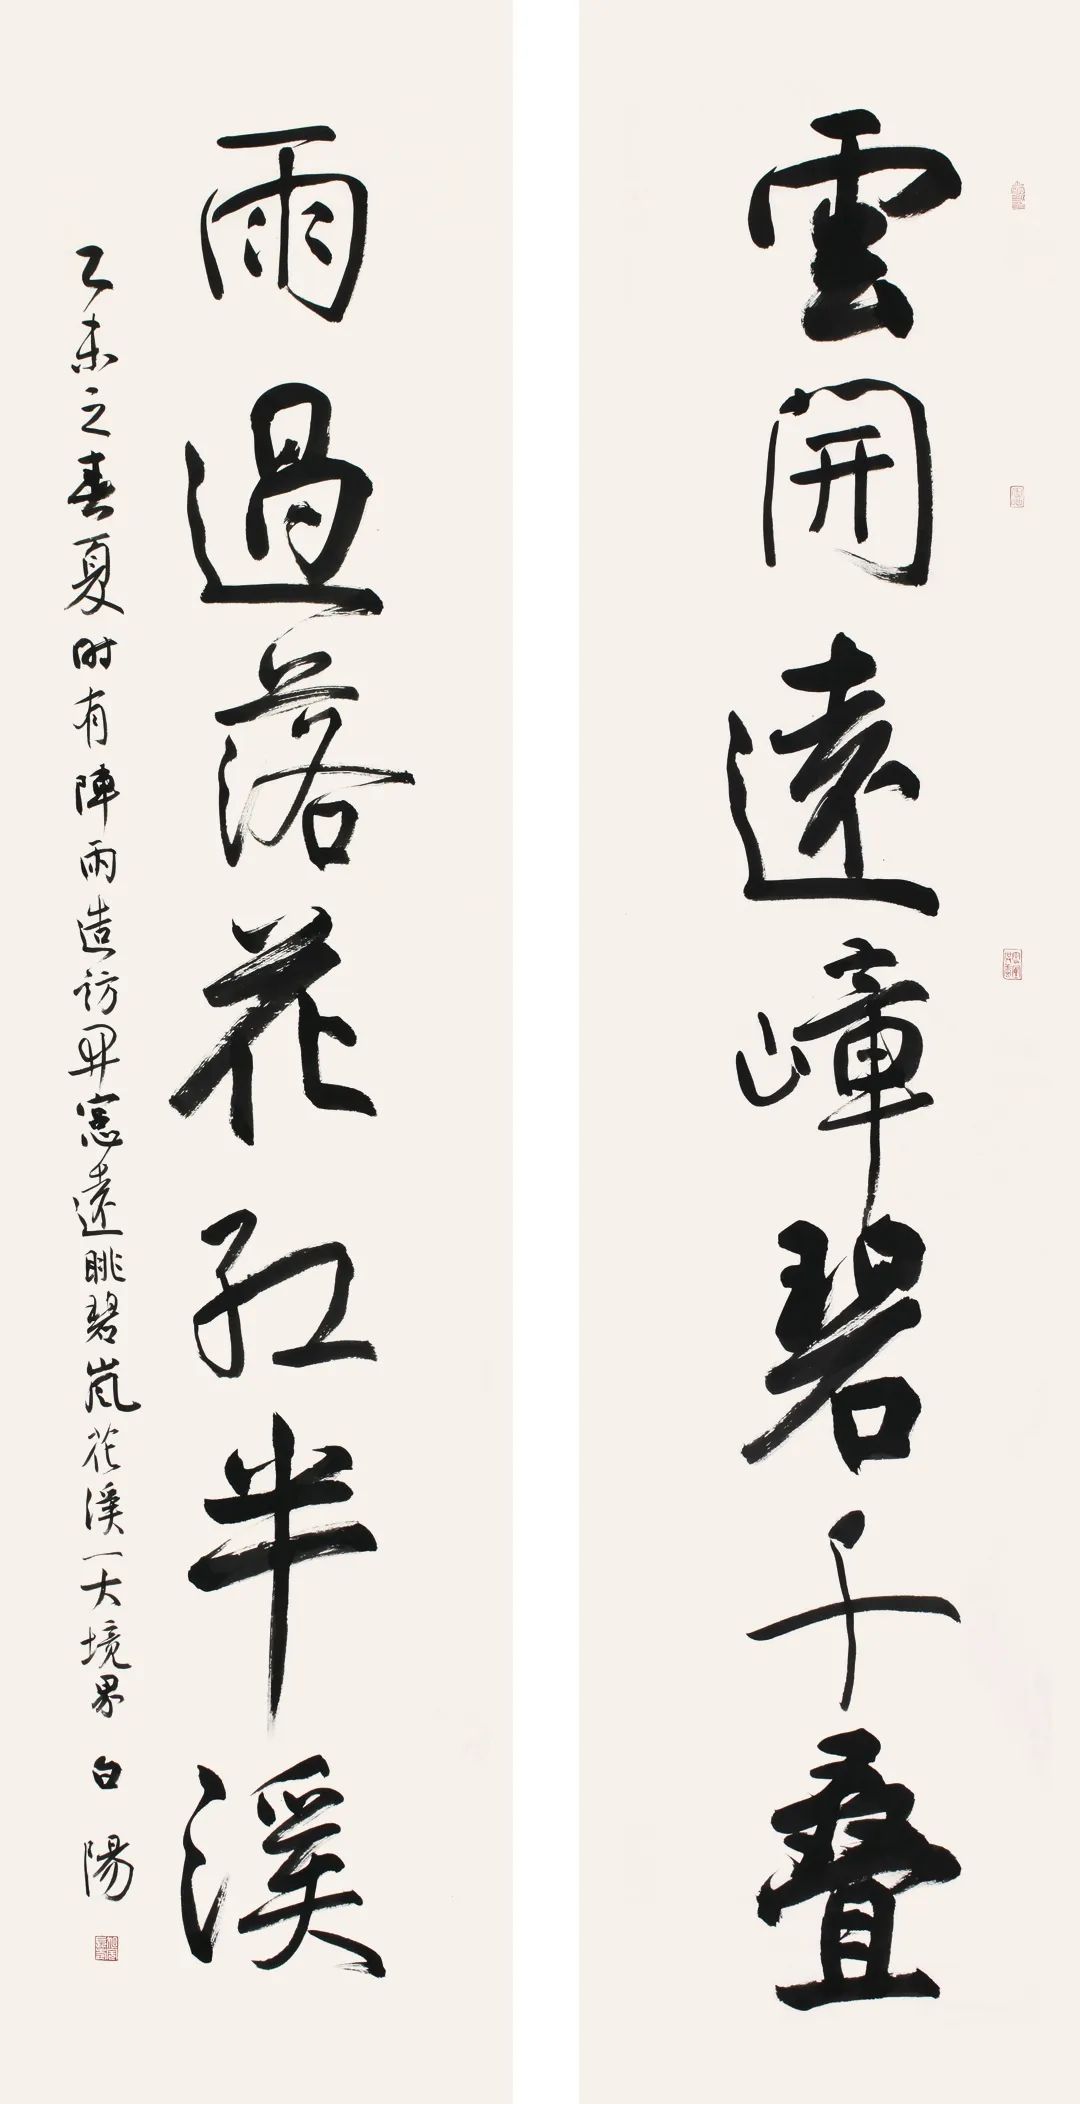 雲開遠嶂碧千叠
雨過落花紅半溪
乙未之春夏时有陣雨造訪開窓遠眺碧嵐花溪一大境界 白陽